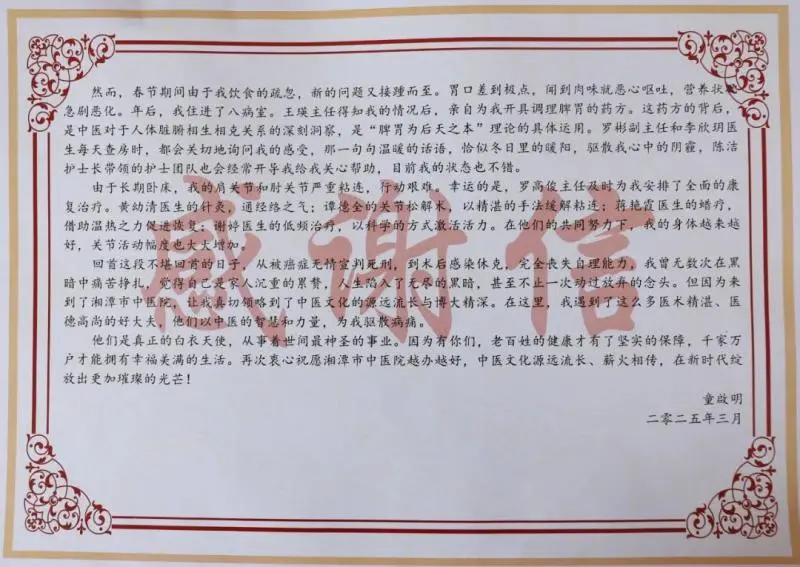 感谢信
然而，春节期间由于我饮食的疏忽，新的问题又接踵而至。胃口差到极点，闻到肉味就恶心呕吐，营养状况
急剧恶化。年后，我住进了八病室。王瑛主任得知我的情况后，亲自为我开具调理脾胃的药方。这药方的背后，
是中医对于人体脏腑相生相克关系的深刻洞察，是“脾胃为后天之本”理论的具体运用。罗彬副主任和李欣玥医
生每天查房时，都会关切地询问我的感受，那一句句温暖的话语，恰似冬日里的暖阳，驱散我心中的阴霾，陈洁
护士长带领的护士团队也会经常开导我给我关心帮助，目前我的状态也不错。
由于长期卧床，我的肩关节和肘关节严重粘连，行动艰难。幸运的是，罗高俊主任及时为我安排了全面的康
复治疗。黄幼清医生的针灸，通经络之气；谭德全的关节松解术，以精湛的手法缓解粘连；蒋艳霞医生的蜡疗，
借助温热之力促进恢复；谢婷医生的低频治疗，以科学的方式激活活力。在他们的共同努力下，我的身体越来越
好，关节活动幅度也大大增加。
回首这段不堪回首的日子，从被癌症无情宣判死刑，到术后感染休克，完全丧失自理能力，我曾无数次在黑
暗中痛苦挣扎，觉得自己是家人沉重的累赘，人生陷入了无尽的黑暗，甚至不止一次动过放弃的念头。但因为来
到了湘潭市中医院，让我真切领略到了中医文化的源远流长与博大精深。在这里，我遇到了这么多医术精湛、医
德高尚的好大夫，他们以中医的智慧和力量，为我驱散病痛。
他们是真正的白衣天使，从事着世间最神圣的事业。因为有你们，老百姓的健康才有了坚实的保障，千家万
户才能拥有幸福美满的生活。再次衷心祝愿湘潭市中医院越办越好，中医文化源远流长、薪火相传，在新时代绽
放出更加璀璨的光芒！
童啟明
二零二五年三月